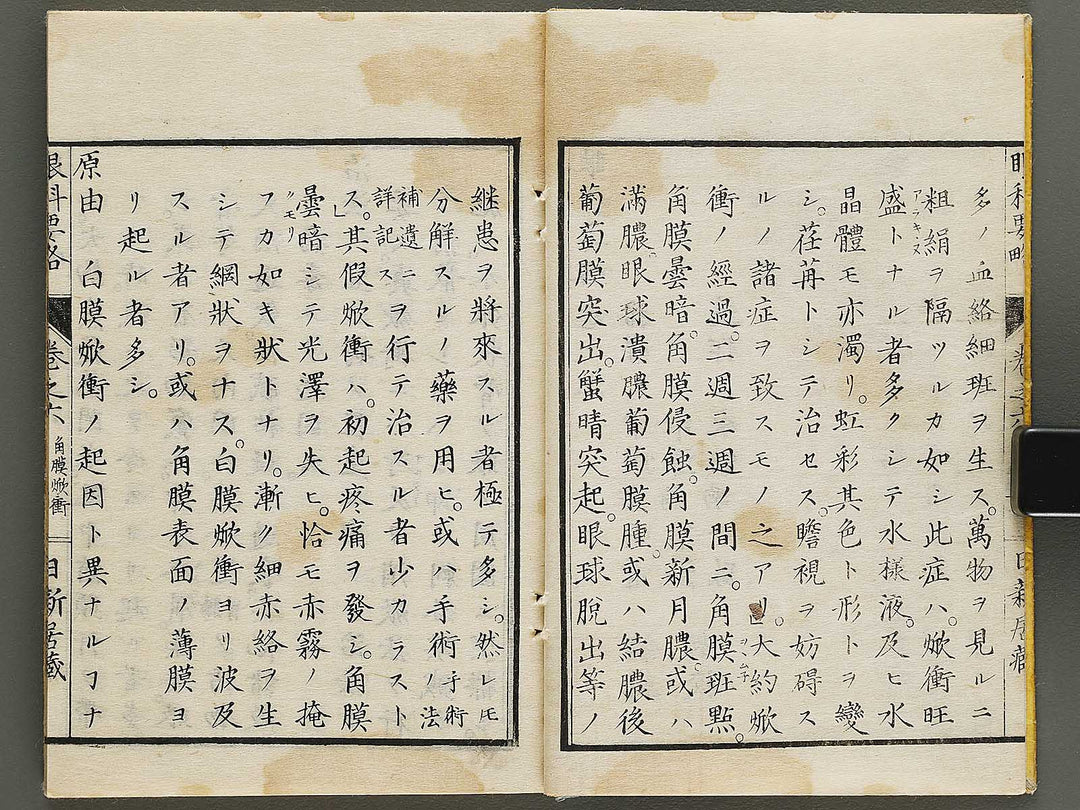 多ノ血絡細班ヲ生ス。萬物ヲ見ルニ
粗絹ヲ隔ツルカ如シ此症ハ。焮衝旺
アラキヌ
盛トナル者多クシテ水樣液。及ヒ水
晶體モ亦濁リ。虹彩其色ト形トヲ變
シ。荏苒トシテ治セス。瞻視ヲ妨碍ス
ルノ諸症ヲ致スモノ之アリ。」大約焮
衝ノ經過。二週三週ノ間ニ。角膜班㸃。
角膜曇暗。角膜侵蝕。角膜新月膿。或ハ
滿膿。眼球潰膿葡萄膜腫。或ハ結膿後
葡萄膜突出。蟹晴突起。眼球脱出等ノ
継患ヲ將來スル者極テ多シ。然レ𪜈
分解スルノ藥ヲ用ヒ。或ハ手術手術ノ法
補遺ニ詳記ス
ヲ行テ治スル者少カラスト
ス。」其假焮衝ハ。初起疼痛ヲ發シ。角膜
曇暗シテ光澤ヲ失ヒ。恰モ赤霧ノ掩
クモリ
フカ如キ狀トナリ。漸ク細赤絡ヲ生
シテ網狀ヲナス。白膜焮衝ヨリ波及
スル者アリ。或ハ角膜表面ノ薄膜ヨ
リ起ル者多シ。
原由　白膜焮衝ノ起因ト異ナルヿナ
眼科要略　卷之六　角膜焮衝　日新居藏